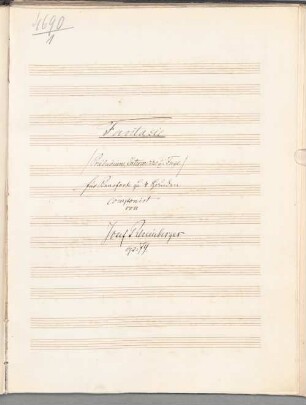 4690
1
Fantasie
(Präludium, Intermezzo u. Fuge)
für Pianoforte zu 4 Händen
componirt
von
Josef Rheinberger
op. 79.